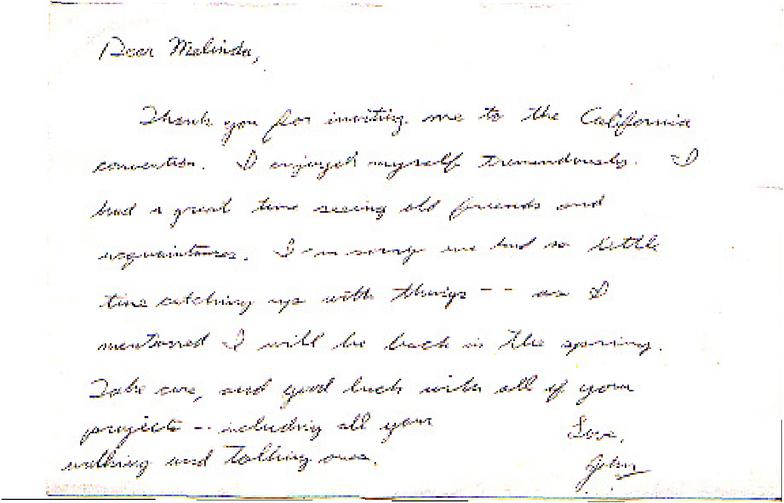 Dear Melinda,
Thank you for inviting me to the California
convention. I enjoyed myself tremendously. I
had a great time seeing old friends and
acquaintances. I'm sorry we had so little
time catching up with things -- as I
mentioned I will be back in the spring.
Take care, and good luck with all of your
projects - including all your
walking and talking ones.
Love,
John